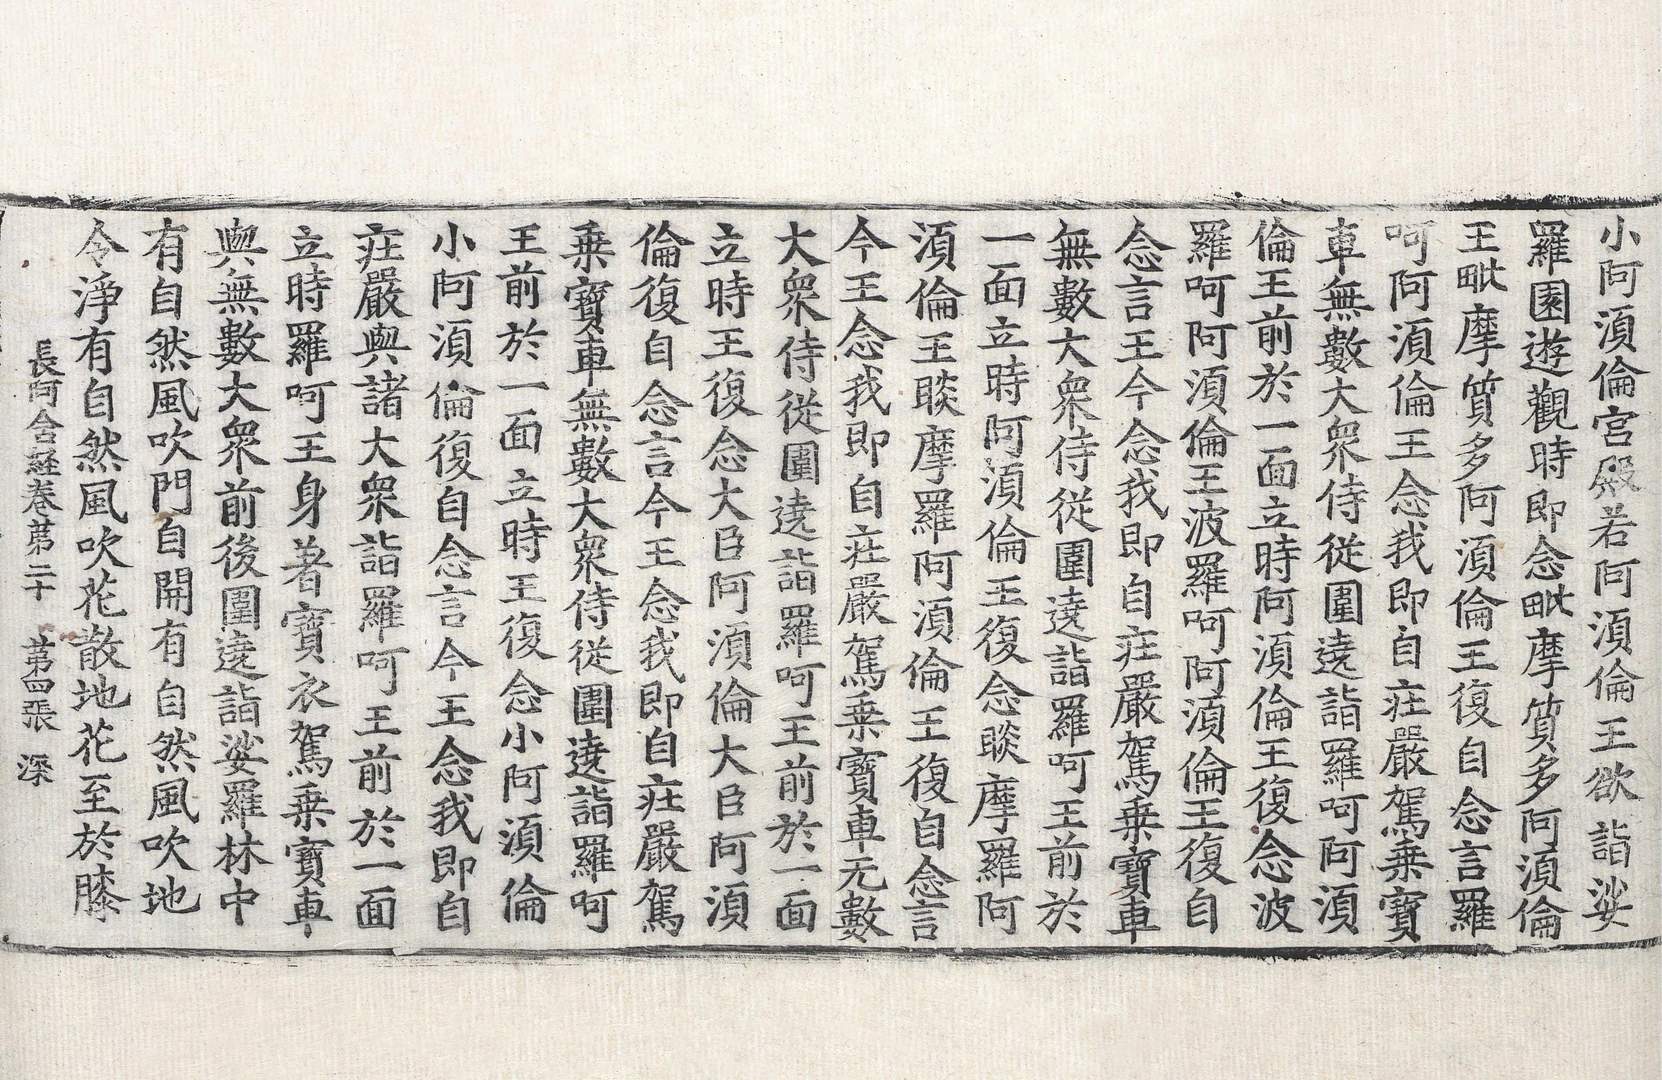 小阿湏倫宫殿若阿湏倫王欲詣娑
羅園遊觀時即念毗摩質多阿湏倫
王毗摩質多阿湏倫王復自念言羅
呵阿湏倫王念我即自莊嚴駕乗寶
車無數大衆侍從圍遶詣羅呵阿湏
倫王前於一面立時阿湏倫王復念波
羅呵阿湏倫王波羅呵阿湏倫王復自
念言王今念我即自莊嚴駕乗寶車
無數大衆侍從圍遶詣羅呵王前於
一面立時阿湏倫王復念睒摩羅阿
湏倫王睒摩羅阿湏倫王復自念言
今王念我即自莊嚴駕乗寶車无數
大衆侍從圍遶詣羅呵王前於一面
立時王復念大臣阿湏倫大臣阿湏
倫復自念言今王念我即自莊嚴駕
乗寶車無數大衆侍從圍遶詣羅呵
王前於一面立時王復念小阿湏倫
小阿湏倫復自念言今王念我即自
莊嚴與諸大衆詣羅呵王前於一面
立時羅呵王身著寶衣駕乗寶車
與無數大衆前後圍遶詣娑羅林中
有自然風吹門自開有自然風吹地
令淨有自然風吹花散地花至於膝
長阿含経卷苐二十 苐四張 深